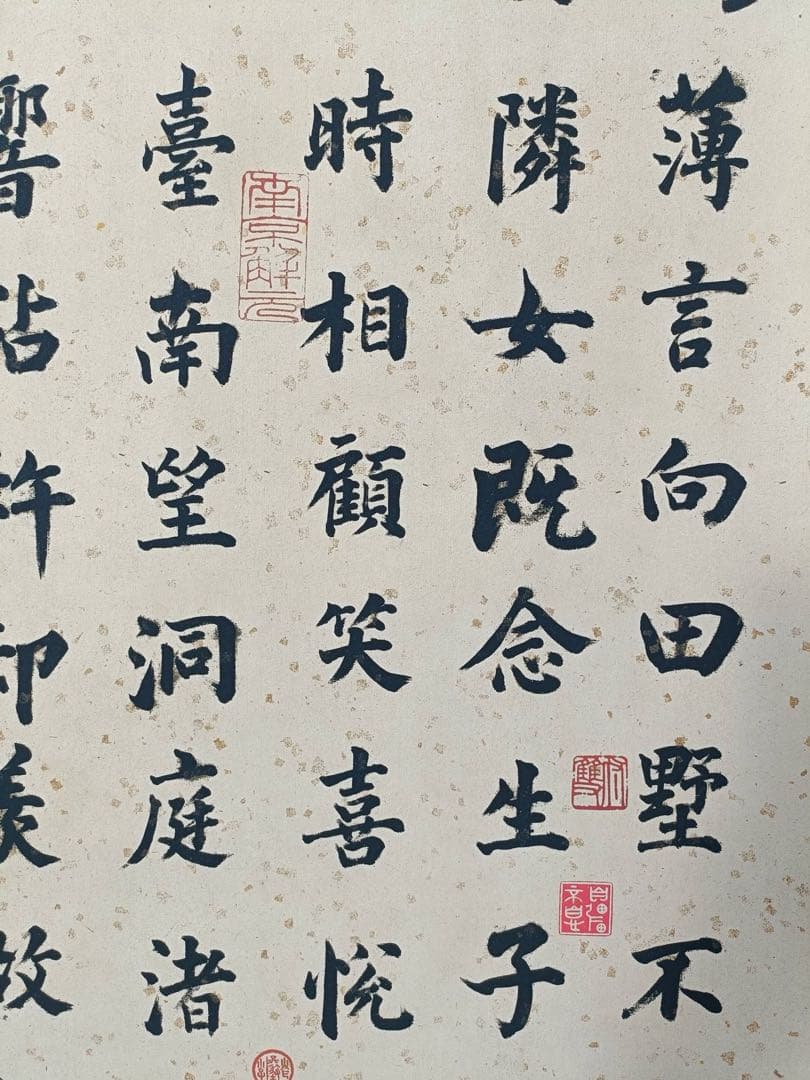 薄言向田墅不
隣女既念生子
時相顧笑喜悅
臺南望洞庭渚
響故
南京解元